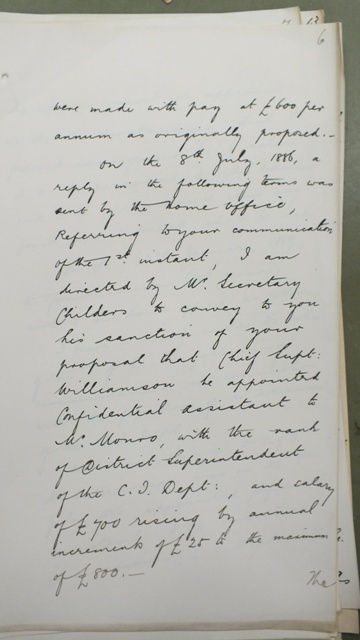 6
were made with pay at £600 per
annum as originally proposed.-
On the 8th July, 1886, a
reply in the following terms was
sent by the Home Office,
Referring to your communication
of the 1st instant, I am
directed by Mr. Secretary
Childers to convey to you
his sanction of your
proposal that Chief Supt:
Williamson be appointed
Confidential assistant to
Mr. Monro, with the rank
of District Superintendent
of the C. I. Dept:, and salary
of £700 rising by annual
increments of £25 to the maximum
of £800.—
The